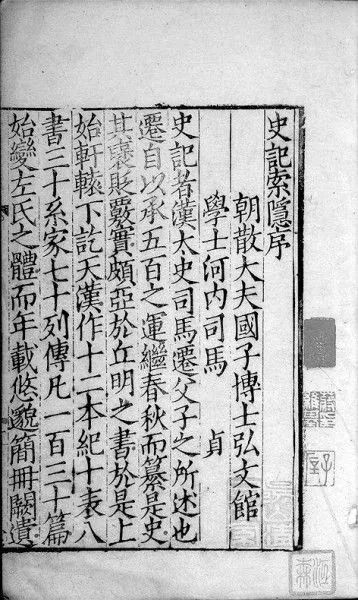 史記索隱序
朝散大夫國子博士弘文館
學士河內司馬貞
史記者漢太史司馬遷父子之所述也
遷自以承五百之運繼春秋而纂是史
其襃貶覈實頗亞於丘明之書於是上
始軒轅下訖天漢作十二本紀十表八
書三十系家七十列傳凡一百三十篇
始變左氏之體而年載悠邈簡冊闕遺